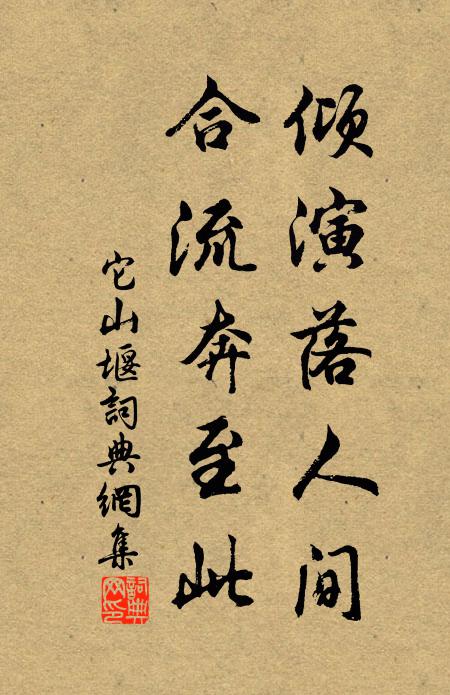 倾演落人间
合流奔至此
它山堰詞典網集
詞典網印